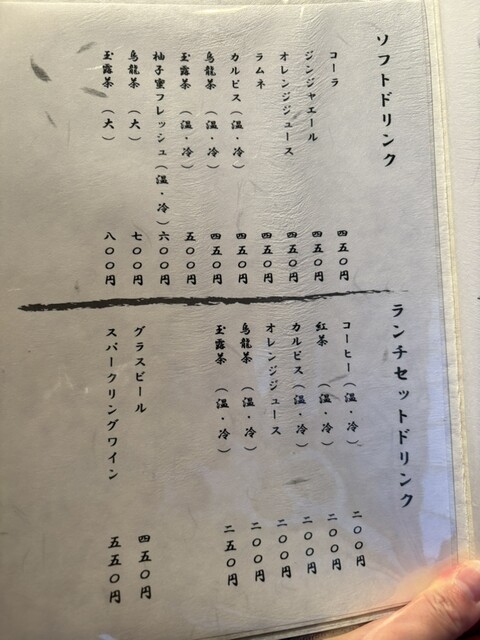 ソフトドリンク
コーラ 四五〇円
ジンジャエール 四五〇円
オレンジジュース 四五〇円
ラムネ 四五〇円
カルピス（温・冷） 四五〇円
烏龍茶（温・冷） 四五〇円
玉露茶（温・冷） 五〇〇円
柚子蜜フレッシュ（温・冷） 六〇〇円
烏龍茶（大） 七〇〇円
玉露茶（大） 八〇〇円
ランチセットドリンク
コーヒー（温・冷） 二〇〇円
紅茶（温・冷） 二〇〇円
カルピス（温・冷） 二〇〇円
オレンジジュース 二〇〇円
烏龍茶（温・冷） 二〇〇円
玉露茶（温・冷） 二五〇円
グラスビール 四五〇円
スパークリングワイン 五五〇円